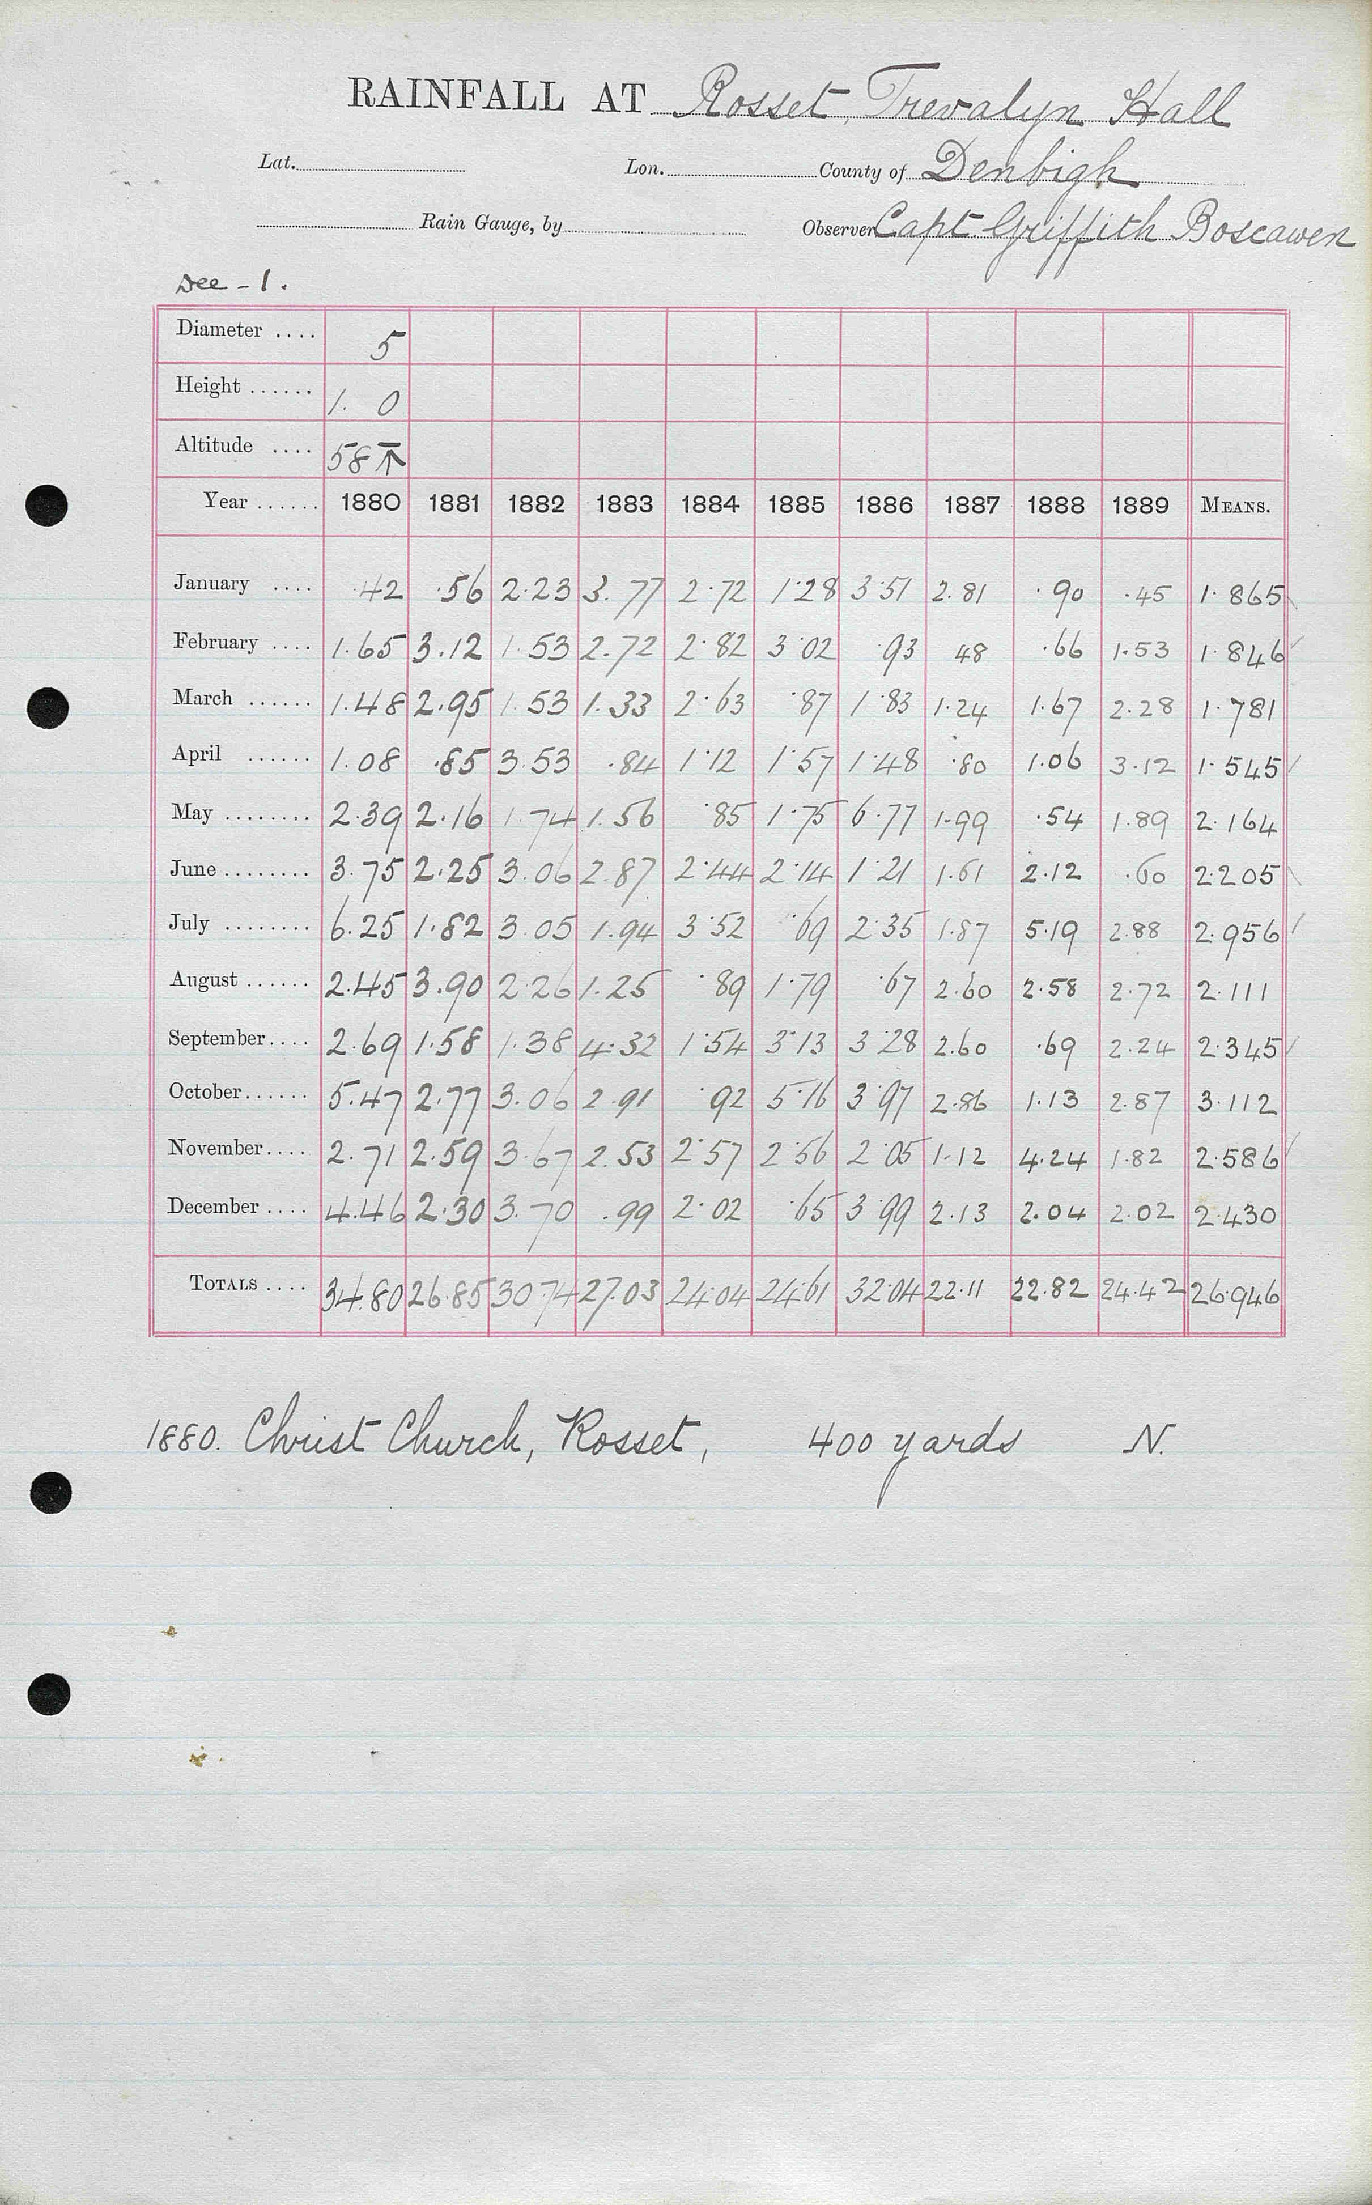 RAINFALL AT Rosset, Trevalyn Hall
Lat. Lon. County of Denbigh
Rain Gauge, by Observer Capt Griffith Boscawen
Dec - 1.
Diameter .... 5
Height ...... 1. 0
Altitude .... 58
Year ...... 1880 1881 1882 1883 1884 1885 1886 1887 1888 1889 MEANS.
January .... .42 .56 2.23 3.77 2.72 1.28 3.51 2.81 .90 .45 1.865
February .... 1.65 3.12 1.53 2.72 2.82 3.02 .93 .48 .66 1.53 1.846
March ...... 1.48 2.95 1.53 1.33 2.63 .87 1.83 1.24 1.67 2.28 1.781
April ...... 1.08 .85 3.53 .84 1.12 1.57 1.48 .80 1.06 3.12 1.545
May ........ 2.39 2.16 1.74 1.56 .85 1.75 6.77 1.99 .54 1.89 2.164
June ........ 3.75 2.25 3.06 2.87 2.44 2.14 1.21 1.61 2.12 .60 2.205
July ........ 6.25 1.82 3.05 1.94 3.52 .69 2.35 1.87 5.19 2.88 2.956
August ...... 2.45 3.90 2.26 1.25 .89 1.79 .67 2.60 2.58 2.72 2.111
September .... 2.69 1.58 1.38 4.32 1.54 3.13 3.28 2.60 .69 2.24 2.345
October ...... 5.47 2.77 3.06 2.91 .92 5.16 3.97 2.86 1.13 2.87 3.112
November .... 2.71 2.59 3.67 2.53 2.57 2.56 2.05 1.12 4.24 1.82 2.586
December .... 4.46 2.30 3.70 .99 2.02 .65 3.99 2.13 2.04 2.02 2.430
TOTALS .... 34.80 26.85 30.74 27.03 24.04 24.61 32.04 22.11 22.82 24.42 26.946
1880. Christ Church, Rosset, 400 yards N.